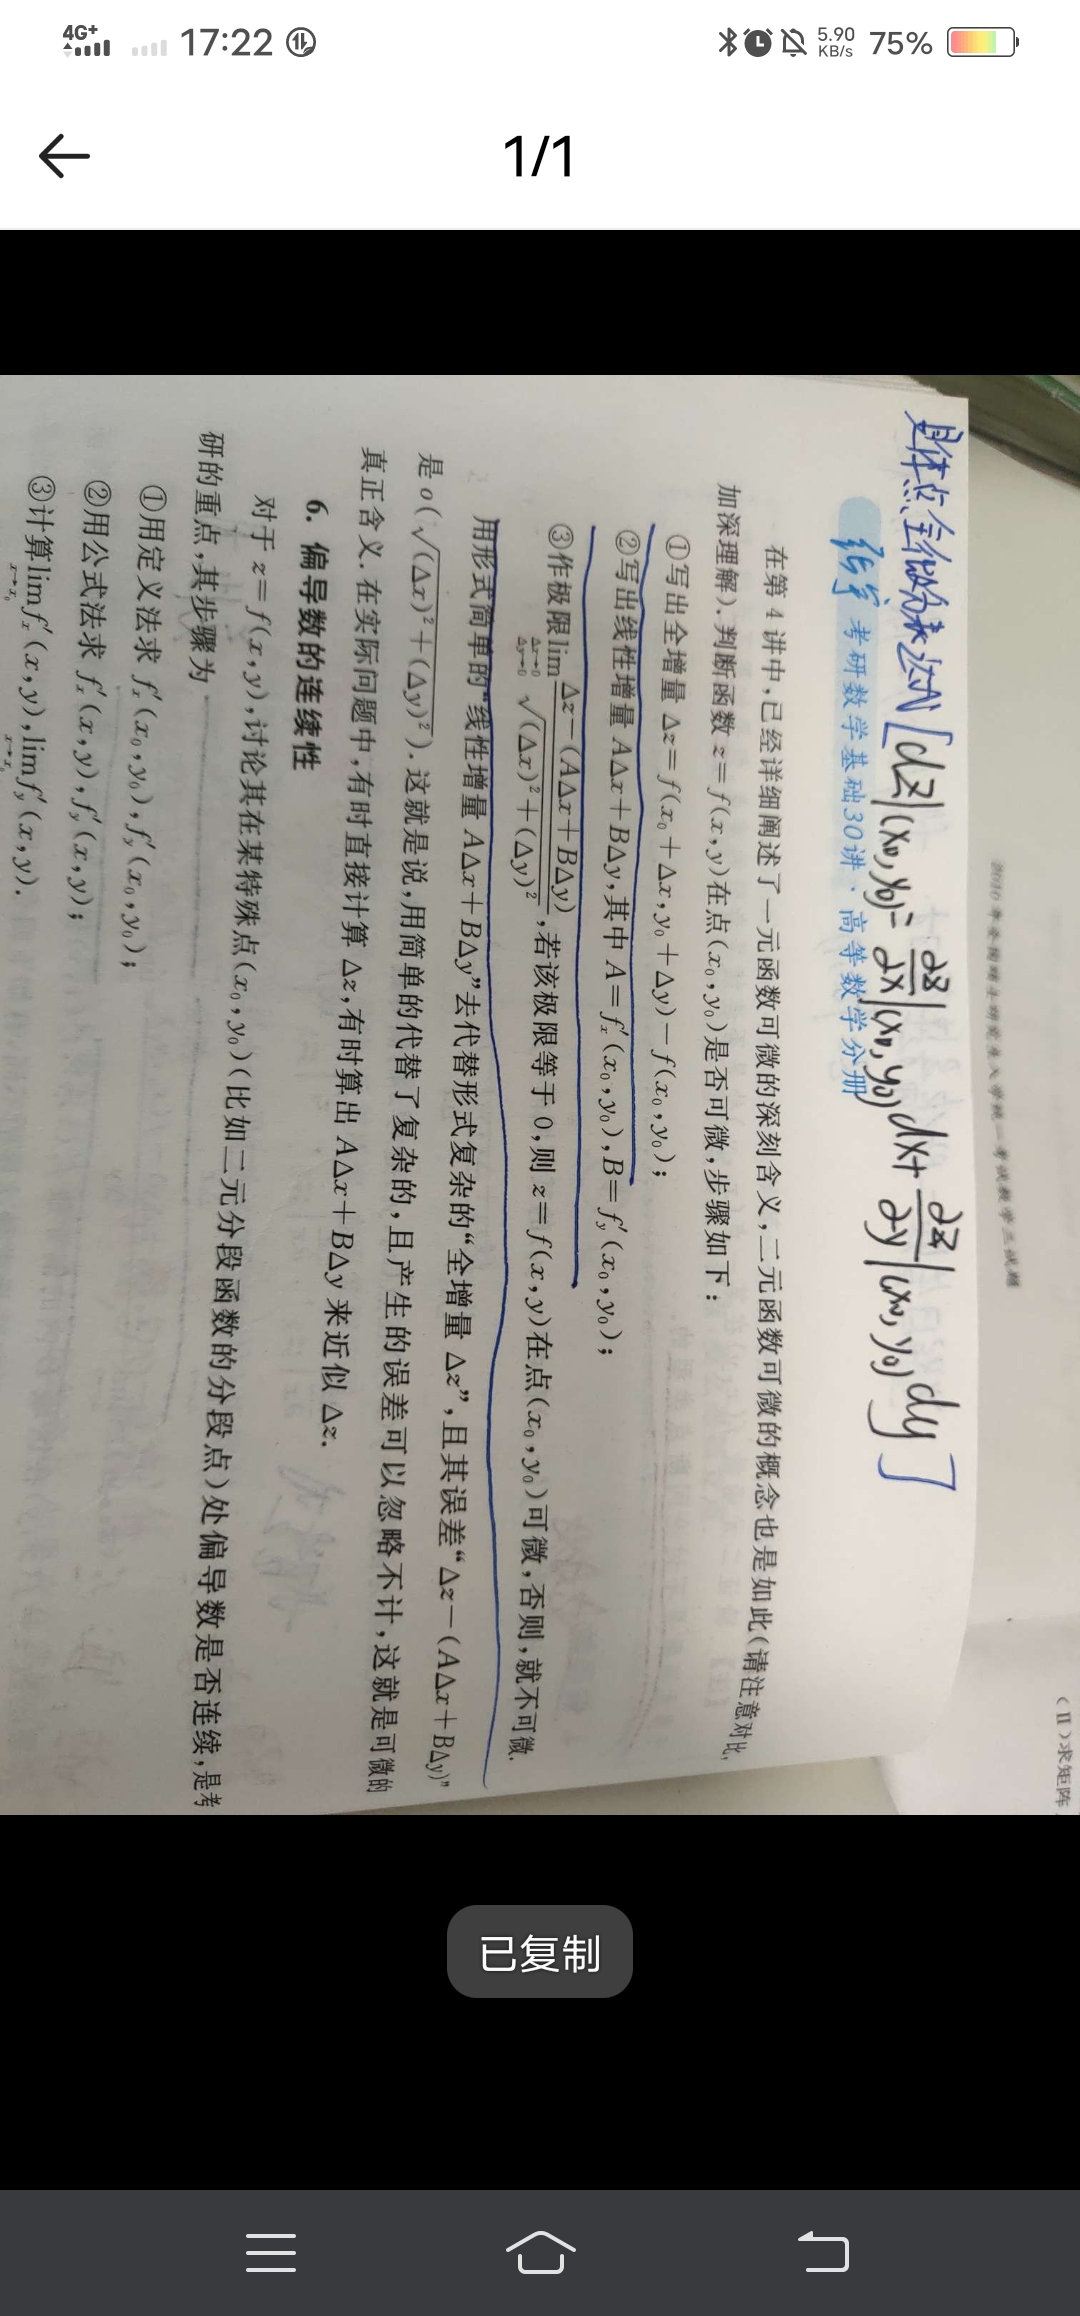 4G+ 17:22 5.90 KB/s 75%
1/1
(Ⅱ)求矩阵
具体点全微分表达式[dz|(x₀,y₀)=∂z/∂x|(x₀,y₀)dx+∂z/∂y|(x₀,y₀)dy]
考研数学基础30讲·高等数学分册
在第4讲中,已经详细阐述了一元函数可微的深刻含义,二元函数可微的概念也是如此(请注意对比,
加深理解).判断函数z=f(x,y)在点(x₀,y₀)是否可微,步骤如下:
①写出全增量Δz=f(x₀+Δx,y₀+Δy)-f(x₀,y₀);
②写出线性增量AΔx+BΔy,其中A=f′ₓ(x₀,y₀),B=f′ᵧ(x₀,y₀);
③作极限lim(Δx→0,Δy→0) [Δz-(AΔx+BΔy)]/√((Δx)²+(Δy)²),若该极限等于0,则z=f(x,y)在点(x₀,y₀)可微,否则,就不可微.
用形式简单的“线性增量AΔx+BΔy”去代替形式复杂的“全增量Δz”,且其误差“Δz-(AΔx+BΔy)”
是o(√((Δx)²+(Δy)²)).这就是说,用简单的代替了复杂的,且产生的误差可以忽略不计,这就是可微的
真正含义.在实际问题中,有时直接计算Δz,有时算出AΔx+BΔy来近似Δz.
6. 偏导数的连续性
对于z=f(x,y),讨论其在某特殊点(x₀,y₀)(比如二元分段函数的分段点)处偏导数是否连续,是考
研的重点,其步骤为
①用定义法求f′ₓ(x₀,y₀),f′ᵧ(x₀,y₀);
②用公式法求f′ₓ(x,y),f′ᵧ(x,y);
③计算lim f′ₓ(x,y),lim f′ᵧ(x,y).
x→x₀ x→x₀
已复制